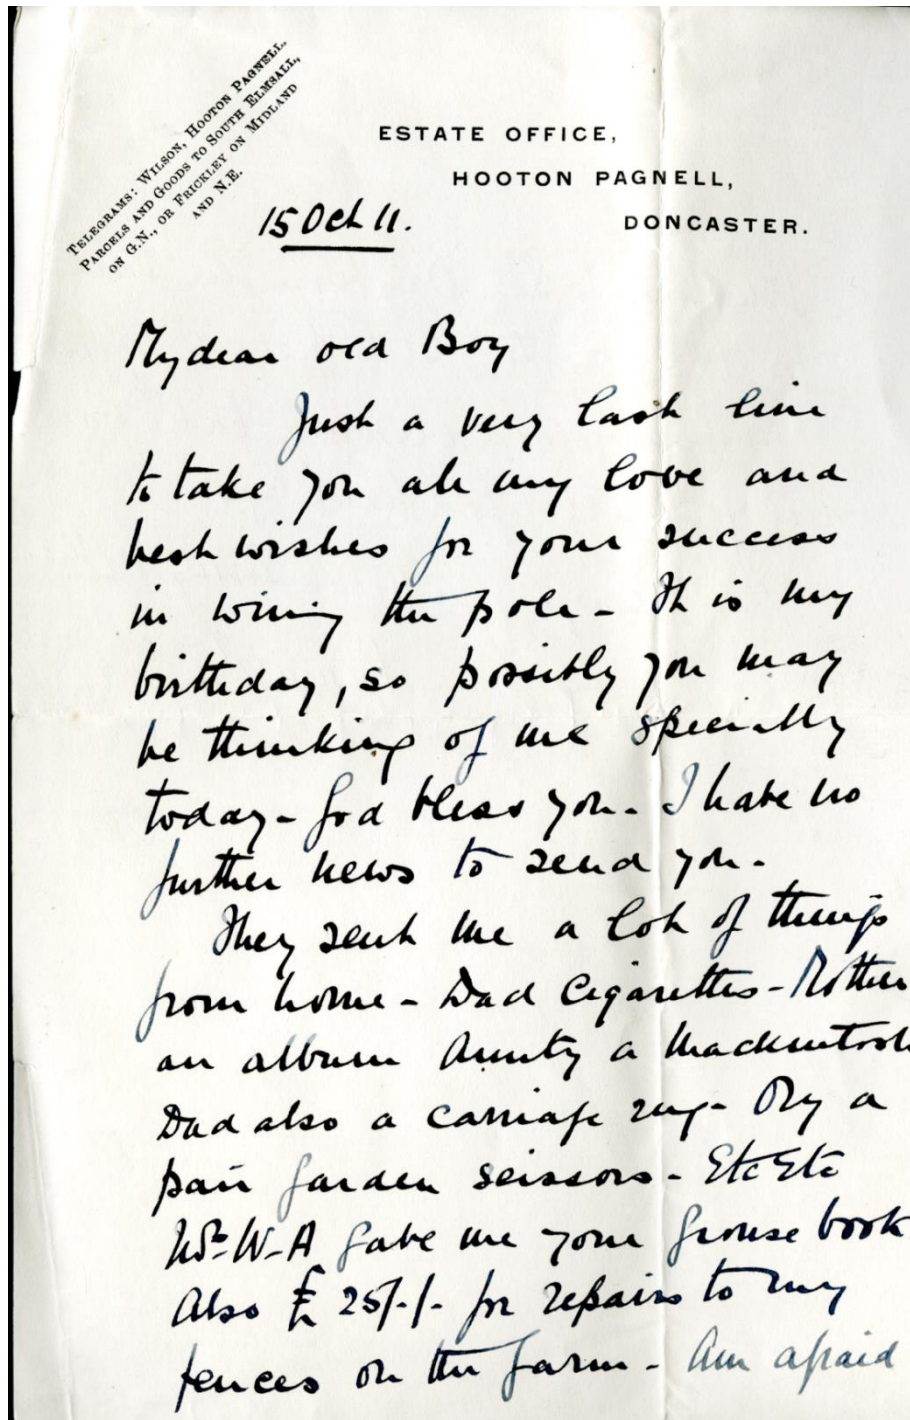 TELEGRAMS: WILSON, HOOTON PAGNELL.
PARCELS AND GOODS TO SOUTH ELMSALL,
ON G.N., OR FRICKLEY ON MIDLAND
AND N.E.
ESTATE OFFICE,
HOOTON PAGNELL,
DONCASTER.
15 Oct 11.
My dear old Boy
Just a very last line
to take you all my love and
best wishes for your success
in wining the pole - It is my
birthday, so possibly you may
be thinking of me specially
today - God bless you - I have no
further news to send you -
They sent me a lot of things
from home - Dad Cigarettes - Mother
an album Aunty a Mackintosh
Dad also a carriage rug - Ory a
pair garden scissors - Etc Etc
W-A gave me your grouse book
Also £ 25/-/- for repairs to my
fences on the farm - Am afraid